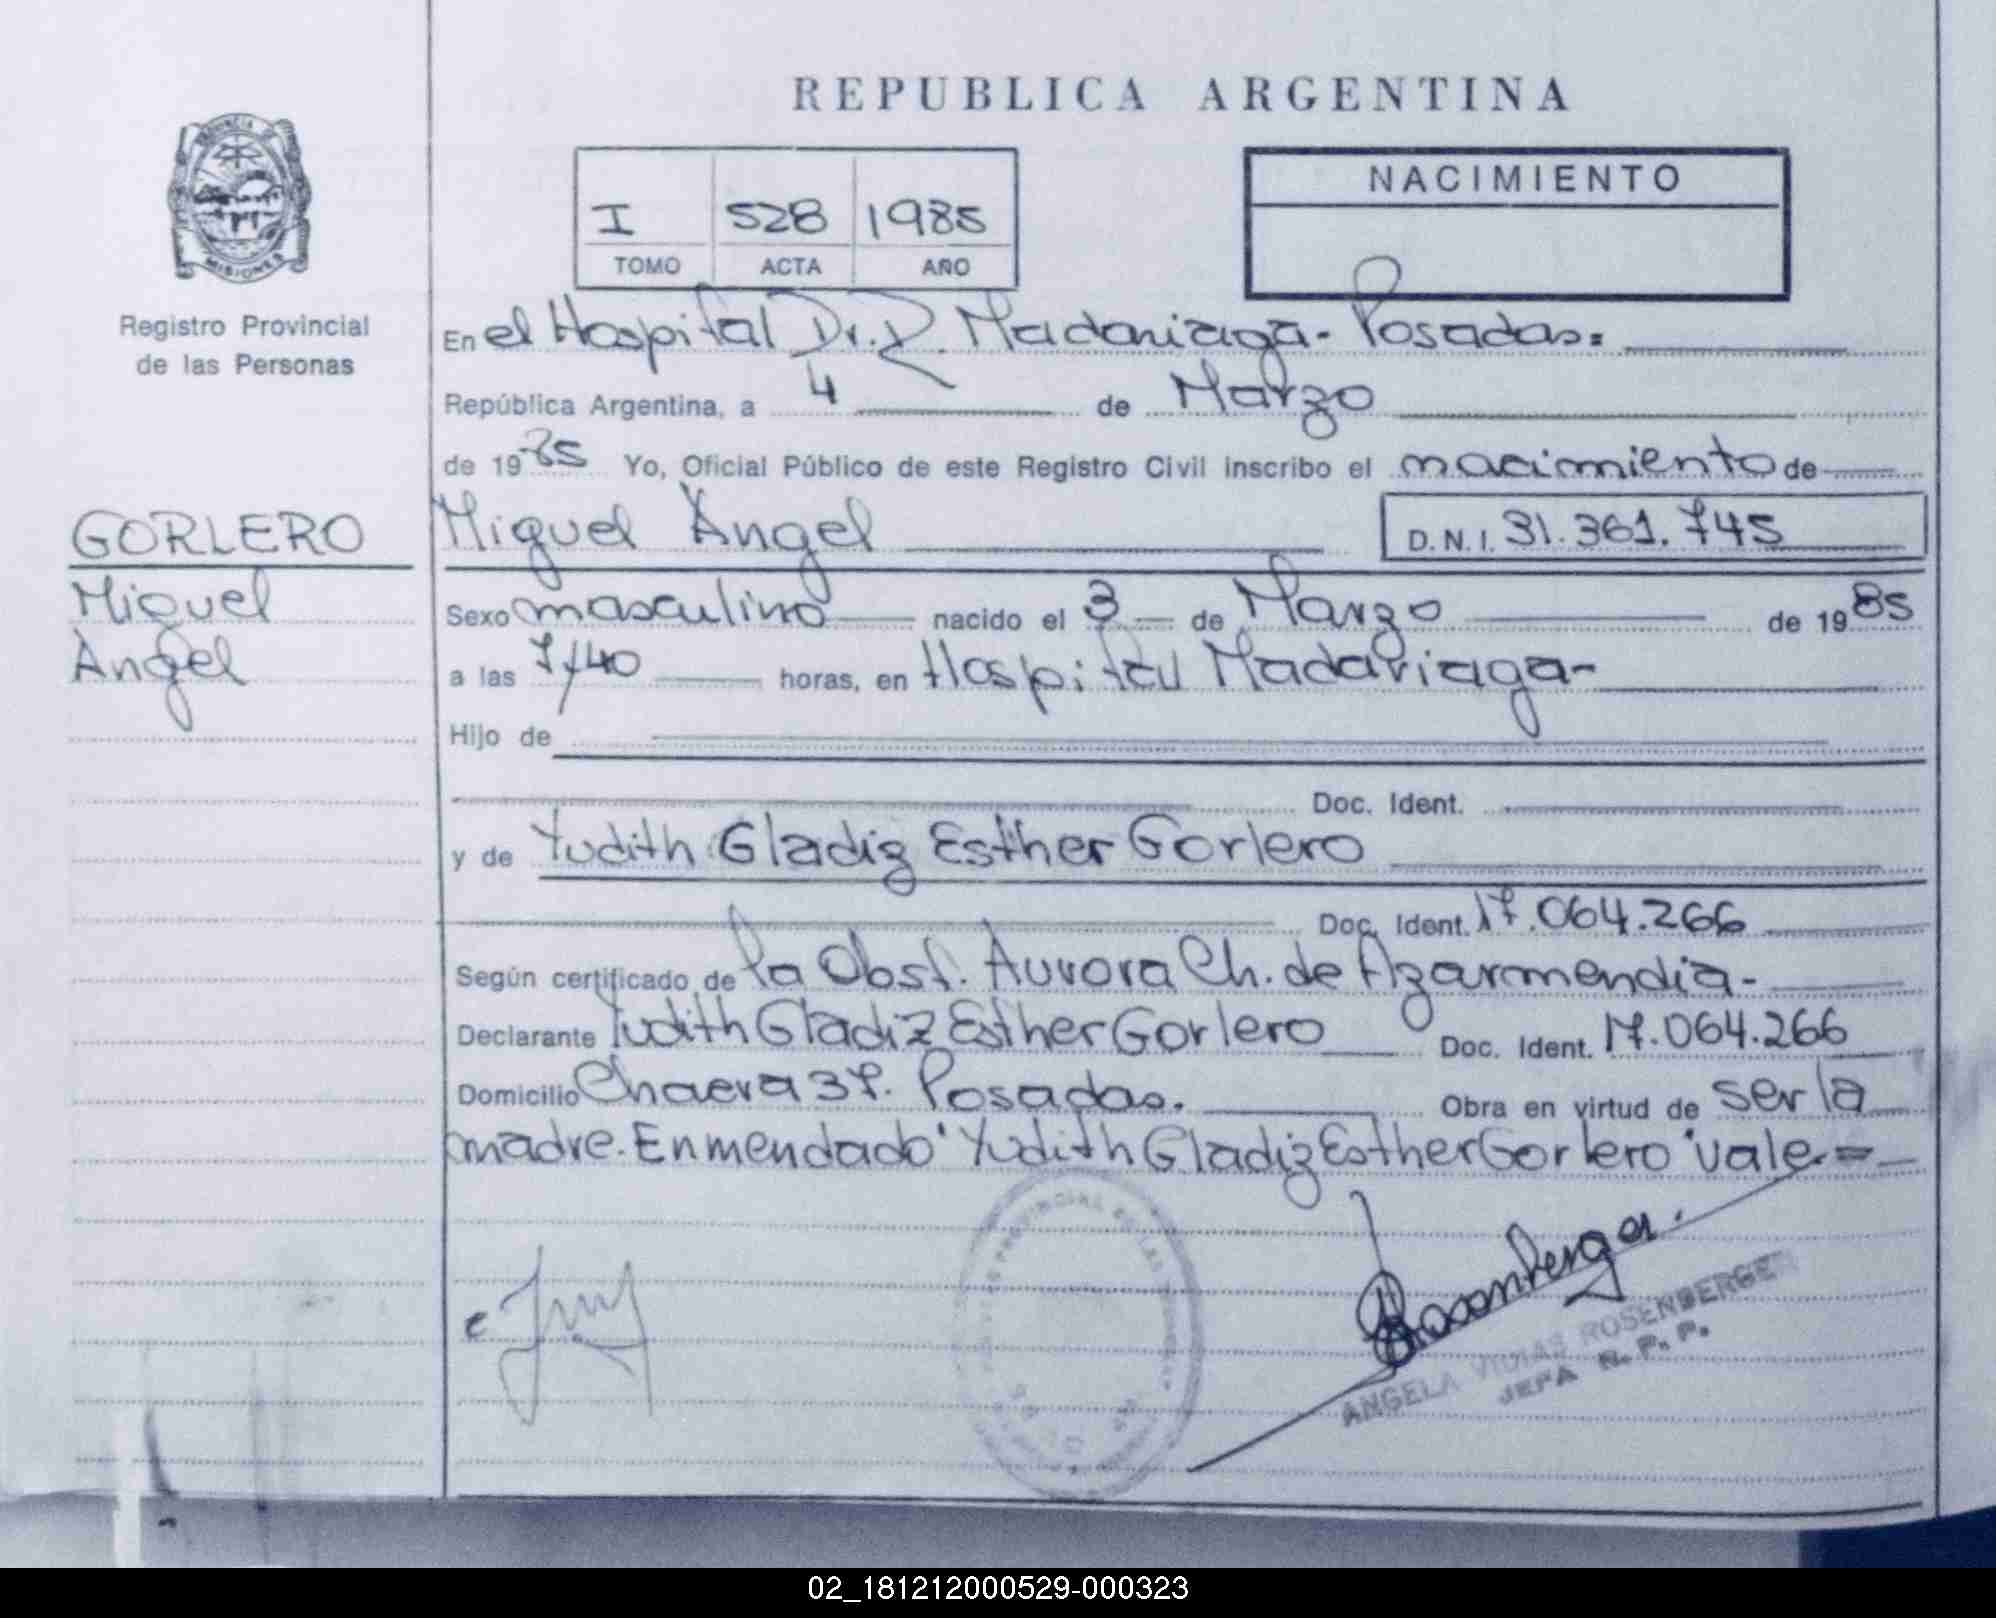 REPUBLICA ARGENTINA
PROVINCIA DE MISIONES
Registro Provincial
de las Personas
I 528 1985
TOMO ACTA AÑO
NACIMIENTO
En el Hospital Dr. R. Madariaga - Posadas =
República Argentina, a 4 de Marzo
de 1985 Yo, Oficial Público de este Registro Civil inscribo el nacimiento de
GORLERO
Miguel
Angel
Miguel Angel D.N.I. 31.361.745
Sexo masculino nacido el 3 de Marzo de 1985
a las 7/40 horas, en Hospital Madariaga -
Hijo de
Doc. Ident.
y de Yudith Gladiz Esther Gorlero
Doc. Ident. 17.064.266
Según certificado de la Obst. Aurora Ch. de Azarmendia -
Declarante Yudith Gladiz Esther Gorlero Doc. Ident. 17.064.266
Domicilio Chacra 37. Posadas. Obra en virtud de ser la
madre. Enmendado "Yudith Gladiz Esther Gorlero" vale. =
PROVINCIAL DE LAS
Rosenberger
ANGELA ROSENBERGER
JEFA R. P. P.
02_181212000529-000323